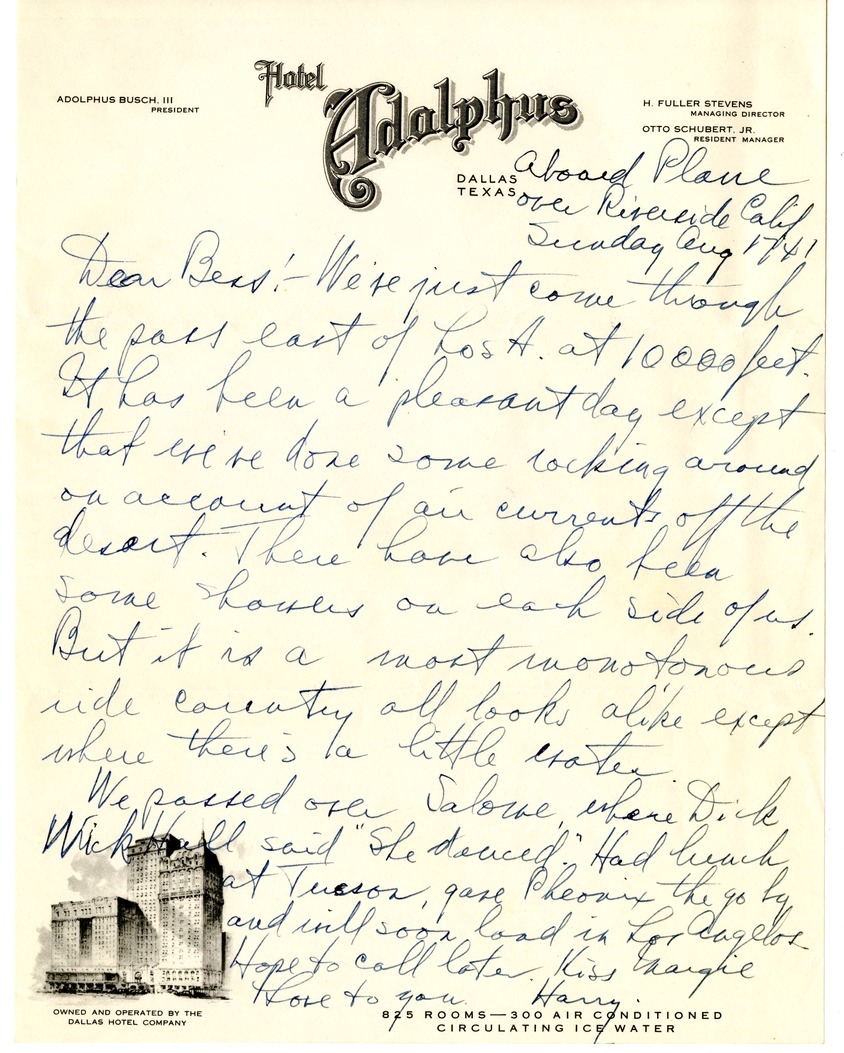 Hotel
Adolphus
ADOLPHUS BUSCH, III
PRESIDENT
H. FULLER STEVENS
MANAGING DIRECTOR
OTTO SCHUBERT, JR.
RESIDENT MANAGER
DALLAS
TEXAS
Aboard Plane
over Riverside Calif
Sunday Aug 17/41
Dear Bess:- We've just come through
the pass east of Los A. at 10000 feet.
It has been a pleasant day except
that we've done some rocking around
on account of air currents off the
desert. There have also been
some showers on each side of us.
But it is a most monotonous
ride country all looks alike except
where there's a little water.
We passed over Salome, where Dick
Wick Hall said "She danced." Had lunch
at Tucson, gave Pheonix the go by
and will soon land in Los Angelos
Hope to call later. Kiss Margie
Love to you. Harry.
OWNED AND OPERATED BY THE
DALLAS HOTEL COMPANY
825 ROOMS—300 AIR CONDITIONED
CIRCULATING ICE WATER